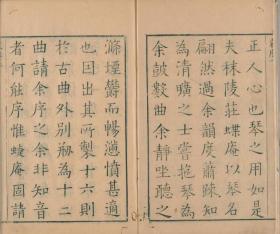 正人心也琴之用如是
夫秣陵莊蝶庵以琴名
翩然過余韻度蕭疎知
為清曠之士嘗抵琴為
余鼓數曲余靜坐聽之
滌煙鬱而暢懣憤甚適
也因出其所製十六則
於古曲外別剏為十二
曲請余序之余非知音
者何能序惟蝶庵固請